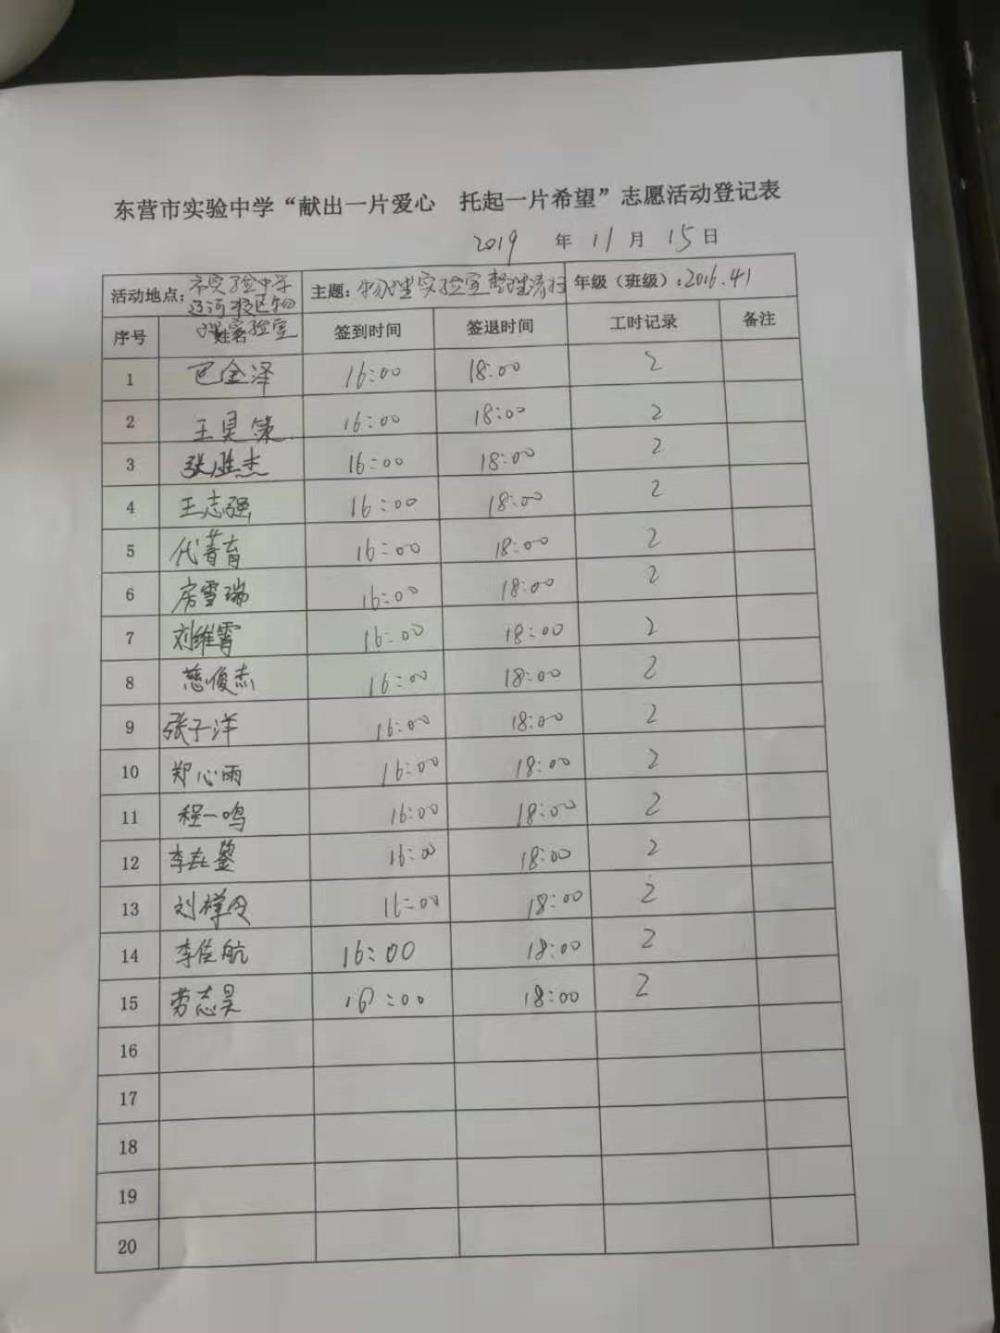 东营市实验中学“献出一片爱心 托起一片希望”志愿活动登记表
2019 年 11 月 15 日
活动地点：市实验中学辽河校区物理实验室 主题：物理实验室整理清扫 年级（班级）：2016.41
序号 姓名 签到时间 签退时间 工时记录 备注
1 巴金泽 16:00 18:00 2
2 王昊策 16:00 18:00 2
3 张胜杰 16:00 18:00 2
4 王志强 16:00 18:00 2
5 代菁育 16:00 18:00 2
6 房雪瑞 16:00 18:00 2
7 刘维霄 16:00 18:00 2
8 慈俊杰 16:00 18:00 2
9 张子洋 16:00 18:00 2
10 郑心雨 16:00 18:00 2
11 程一鸣 16:00 18:00 2
12 16:00 18:00 2
13 16:00 18:00 2
14 李佳航 16:00 18:00 2
15 劳志昊 16:00 18:00 2
16
17
18
19
20